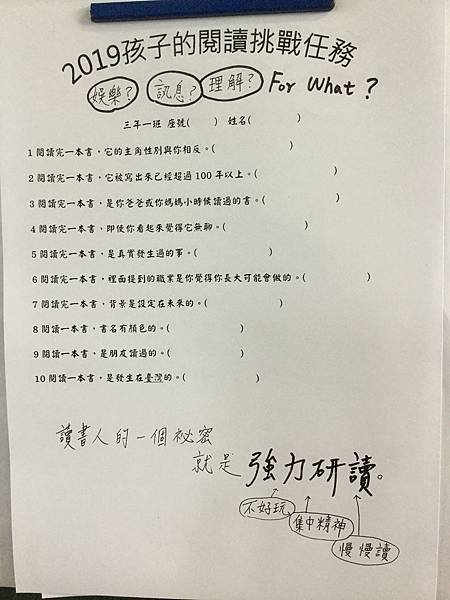 2019孩子的閱讀挑戰任務
娛樂? 訊息? 理解? For What?
三年一班 座號( ) 姓名( )
1 閱讀完一本書，它的主角性別與你相反。( )
2 閱讀完一本書，它被寫出來已經超過 100 年以上。( )
3 閱讀完一本書，是你爸爸或你媽媽小時候讀過的書。( )
4 閱讀完一本書，即使你看起來覺得它無聊。( )
5 閱讀完一本書，是真實發生過的事。( )
6 閱讀完一本書，裡面提到的職業是你覺得你長大可能會做的。( )
7 閱讀完一本書，背景是設定在未來的。( )
8 閱讀一本書，書名有顏色的。( )
9 閱讀一本書，是朋友讀過的。( )
10 閱讀一本書，是發生在臺灣的。( )
讀書人的一個祕密
就是 強力研讀。
不好玩
集中精神
慢慢讀